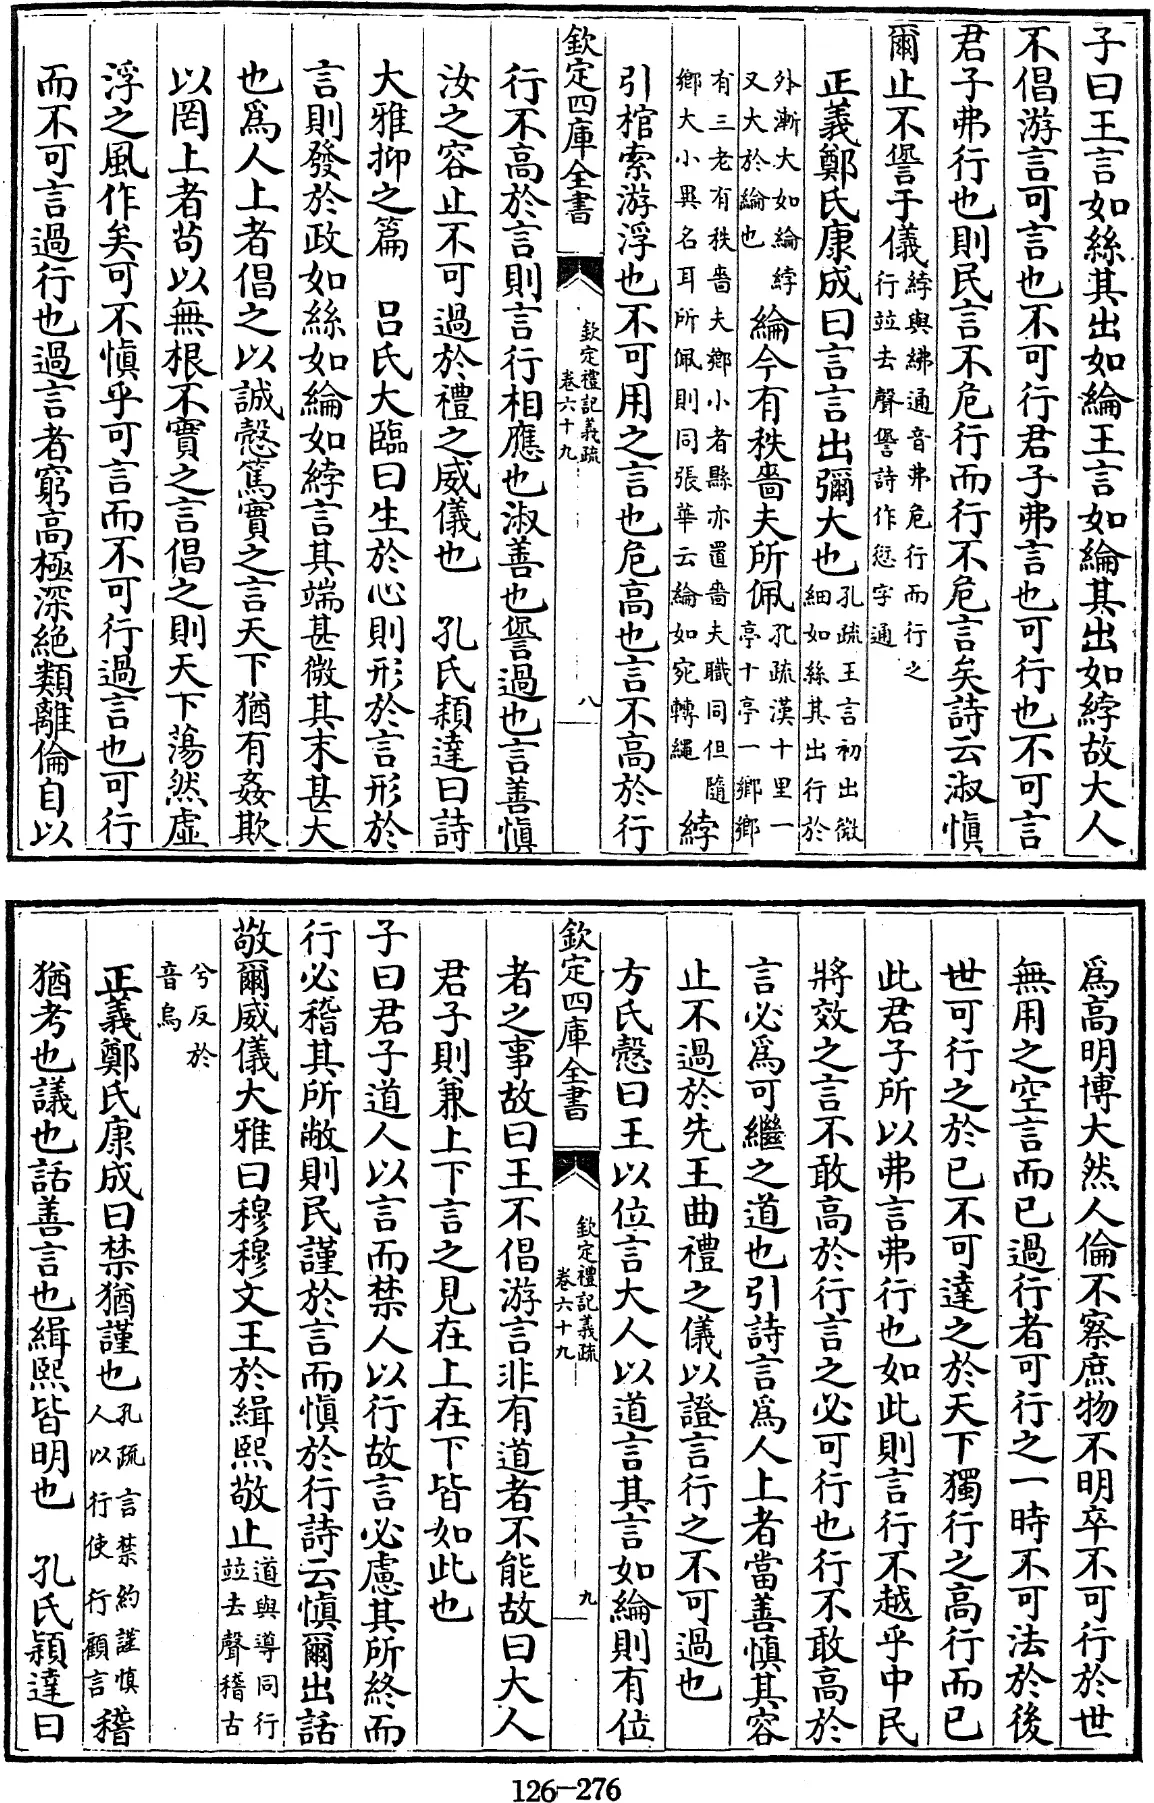 子曰王言如絲其出如綸王言如綸其出如綍故大人
不倡游言可言也不可行君子弗言也可行也不可言
君子弗行也則民言不危行而行不危言矣詩云淑慎
爾止不諐于儀綍與紼通音弗危行而行之行並去聲諐詩作愆字通
正義鄭氏康成曰言言出彌大也孔疏王言初出微細如絲其出行於
外漸大如綸綍又大於綸也綸今有秩嗇夫所佩孔疏漢十里一亭十亭一鄉鄉
有三老有秩嗇夫鄉小者縣亦置嗇夫職同但隨鄉大小異名耳所佩則同張華云綸如宛轉繩綍
引棺索游浮也不可用之言也危高也言不高於行
欽定四庫全書 欽定禮記義疏卷六十九 八
行不高於言則言行相應也淑善也諐過也言善慎
汝之容止不可過於禮之威儀也 孔氏穎達曰詩
大雅抑之篇 呂氏大臨曰生於心則形於言形於
言則發於政如絲如綸如綍言其端甚微其末甚大
也為人上者倡之以誠慤篤實之言天下猶有姦欺
以罔上者苟以無根不實之言倡之則天下蕩然虛
浮之風作矣可不慎乎可言而不可行過言也可行
而不可言過行也過言者窮高極深絶類離倫自以
為高明博大然人倫不察庶物不明卒不可行於世
無用之空言而已過行者可行之一時不可法於後
世可行之於已不可達之於天下獨行之高行而已
此君子所以弗言弗行也如此則言行不越乎中民
將效之言不敢高於行言之必可行也行不敢高於
言必為可繼之道也引詩言為人上者當善慎其容
止不過於先王曲禮之儀以證言行之不可過也
方氏慤曰王以位言大人以道言其言如綸則有位
欽定四庫全書 欽定禮記義疏卷六十九 九
者之事故曰王不倡游言非有道者不能故曰大人
君子則兼上下言之見在上在下皆如此也
子曰君子道人以言而禁人以行故言必慮其所終而
行必稽其所敝則民謹於言而慎於行詩云慎爾出話
敬爾威儀大雅曰穆穆文王於緝熙敬止道與導同行並去聲稽古
兮反於音烏
正義鄭氏康成曰禁猶謹也孔疏言禁約謹慎人以行使行顧言稽
猶考也議也話善言也緝熙皆明也 孔氏穎達曰
126-276